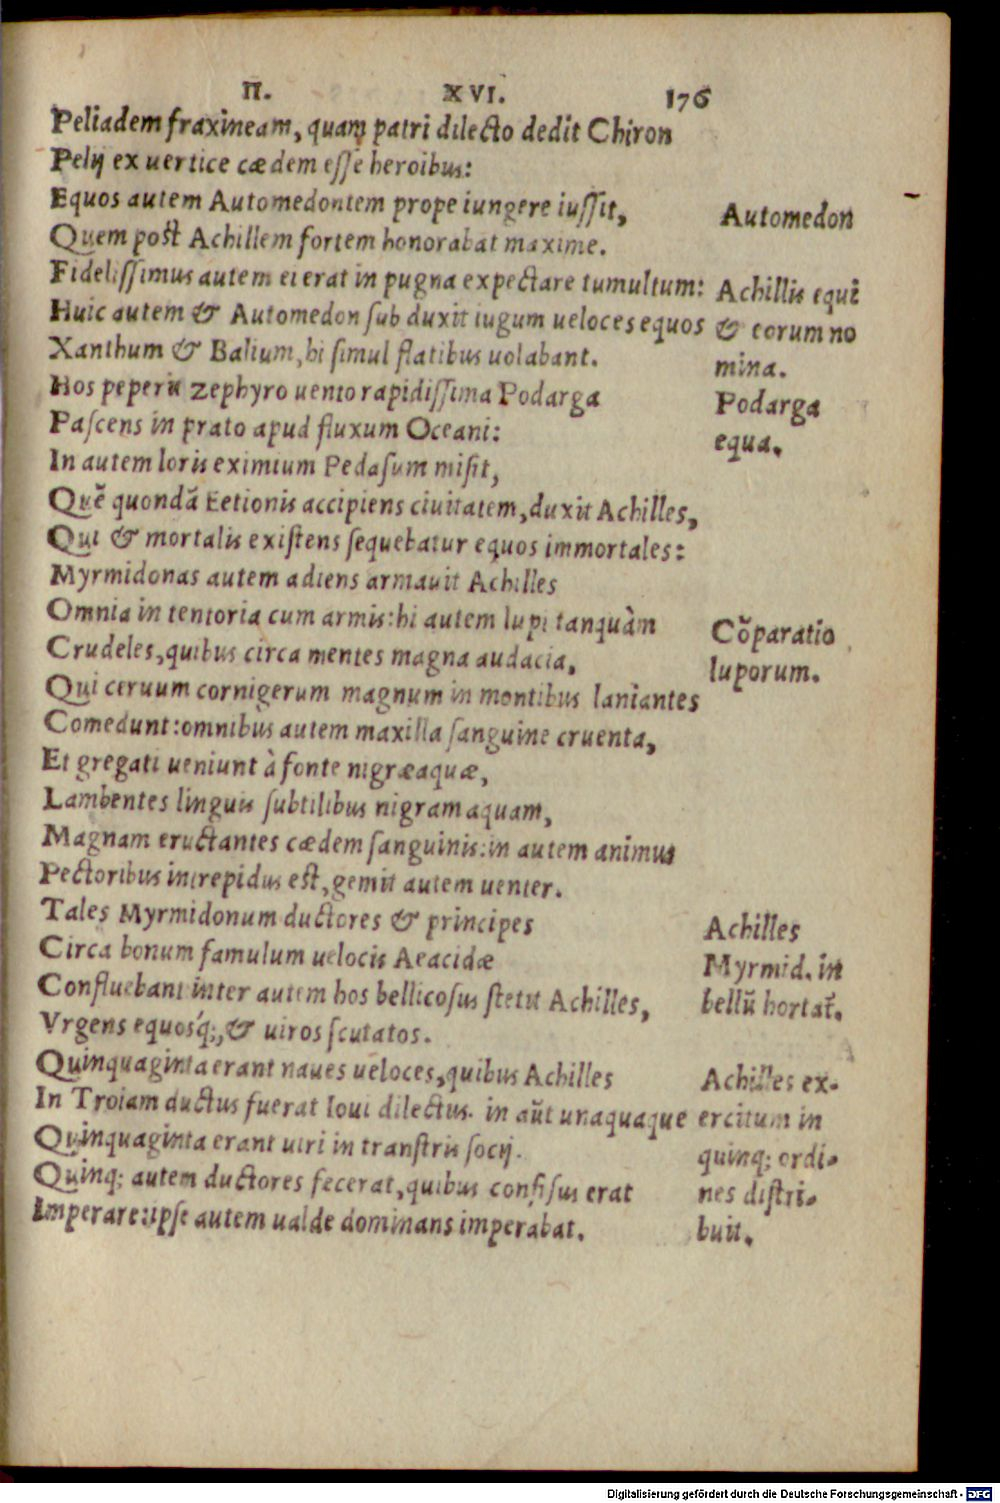 Π. XVI. 176
Peliadem fraxineam, quam patri dilecto dedit Chiron
Pelij ex uertice cædem esse heroibus:
Equos autem Automedontem prope iungere iussit,
Automedon
Quem post Achillem fortem honorabat maxime.
Fidelissimus autem ei erat in pugna expectare tumultum:
Huic autem & Automedon sub duxit iugum ueloces equos
Xanthum & Balium, hi simul flatibus uolabant.
Achillis equi
& eorum no
mina.
Hos peperit Zephyro uento rapidissima Podarga
Pascens in prato apud fluxum Oceani:
Podarga
equa.
In autem loris eximium Pedasum misit,
Quē quondā Eetionis accipiens ciuitatem, duxit Achilles,
Qui & mortalis existens sequebatur equos immortales:
Myrmidonas autem adiens armauit Achilles
Omnia in tentoria cum armis: hi autem lupi tanquàm
Crudeles, quibus circa mentes magna audacia,
Cōparatio
luporum.
Qui ceruum cornigerum magnum in montibus laniantes
Comedunt: omnibus autem maxilla sanguine cruenta,
Et gregati ueniunt à fonte nigræaquæ,
Lambentes linguis subtilibus nigram aquam,
Magnam eructantes cædem sanguinis: in autem animus
Pectoribus intrepidus est, gemit autem uenter.
Tales Myrmidonum ductores & principes
Circa bonum famulum uelocis Aeacidæ
Confluebant inter autem hos bellicosus stetit Achilles,
Vrgens equosq́;, & uiros scutatos.
Achilles
Myrmid. in
bellū hortat̃.
Quinquaginta erant naues ueloces, quibus Achilles
In Troiam ductus fuerat Ioui dilectus. in aūt unaquaque
Quinquaginta erant uiri in transtris socij.
Quinq; autem ductores fecerat, quibus confisus erat
Imperare: ipse autem ualde dominans imperabat.
Achilles ex-
ercitum in
quinq; ordi-
nes distri-
buit.
Digitalisierung gefördert durch die Deutsche Forschungsgemeinschaft - DFG